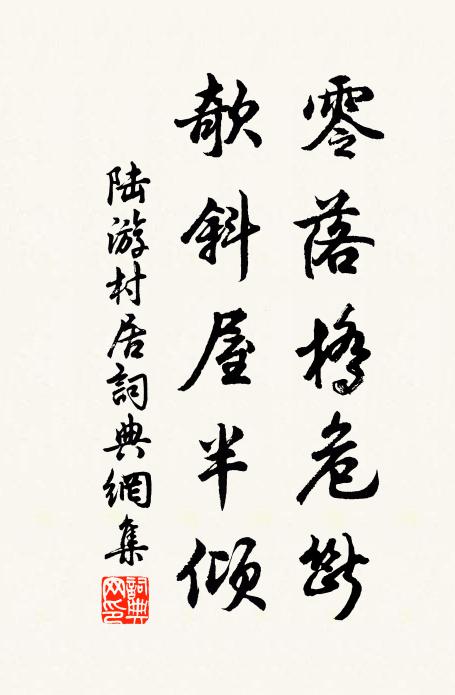 零落橋危斷
欹斜屋半傾
陆游村居詞典網集
詞典网印